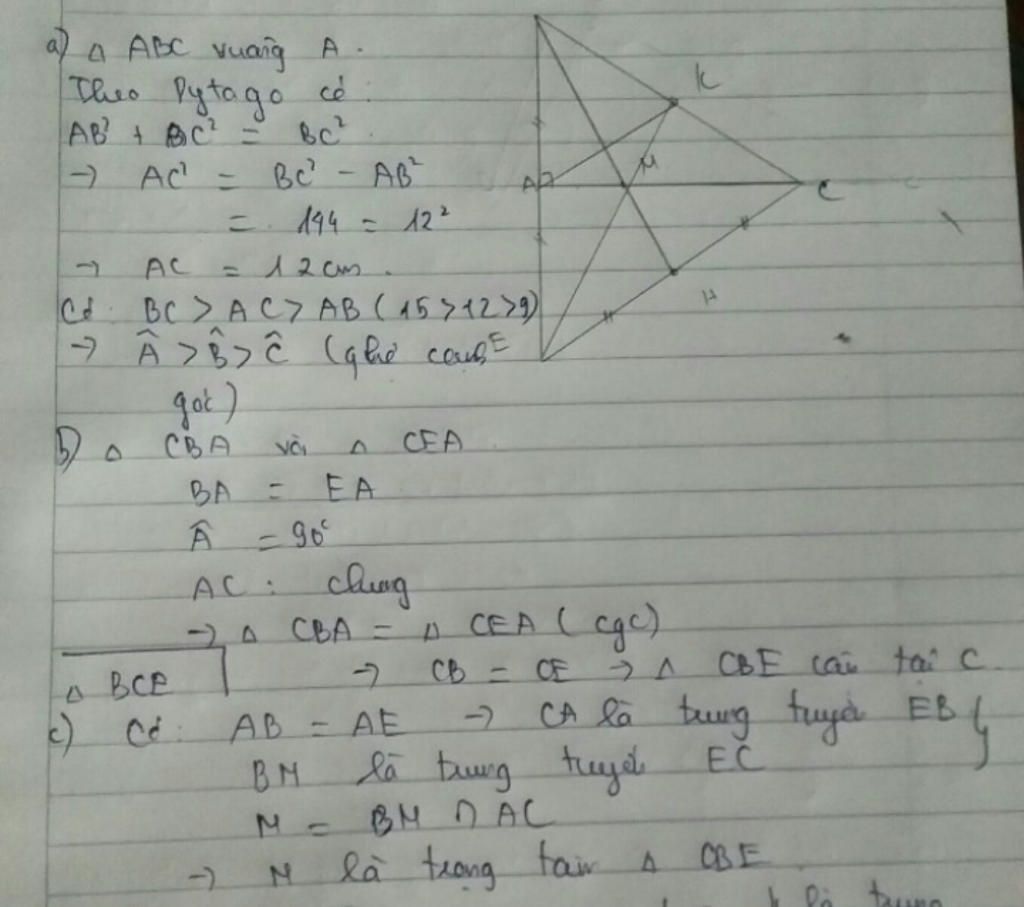 a) Δ ABC vuông A.
Theo Pytago có:
AB² + BC² = BC²
→ AC² = BC² - AB²
= 144 = 12²
→ AC = 12cm.
Có: BC > AC > AB (15 > 12 > 9)
→ Â > B̂ > Ĉ (
góc)
K
M
A
C
H
E
b) Δ CBA và Δ CEA
BA = EA
Â = 90°
AC: chung
→ Δ CBA = Δ CEA (cgc)
→ CB = CE → Δ CBE cân tại C
Δ BCE
c) Có: AB = AE → CA là trung tuyến EB }
BM là trung tuyến EC
M = BM ∩ AC
→ M là trọng tâm Δ CBE
là trung